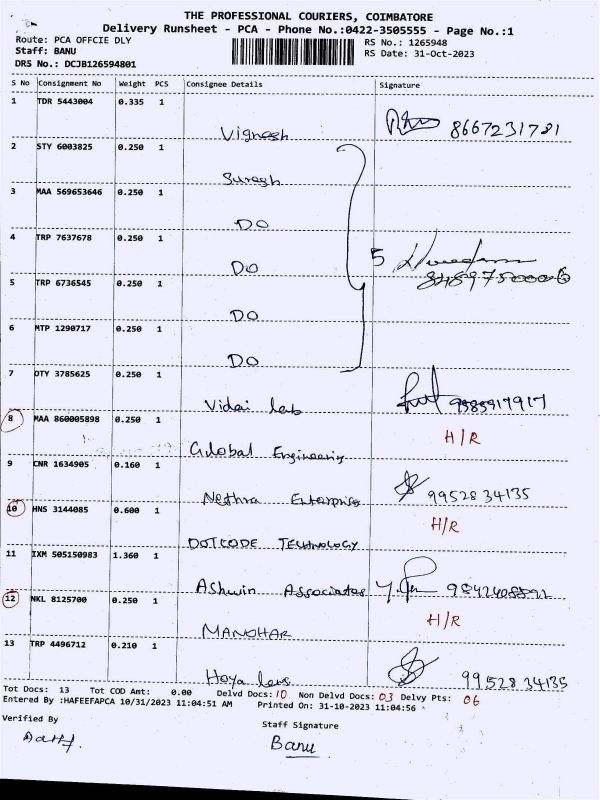 THE PROFESSIONAL COURIERS, COIMBATORE
Delivery Runsheet - PCA - Phone No.:0422-3505555 - Page No.:1
Route: PCA OFFCIE DLY RS No.: 1265948
Staff: BANU RS Date: 31-Oct-2023
DRS No.: DCJB126594801
S No Consignment No Weight PCS Consignee Details Signature
1 TDR 5443004 0.335 1
Vignesh 8667231781
2 STY 6003825 0.250 1
Suresh
3 MAA 569653646 0.250 1
DO
4 TRP 7637678 0.250 1
DO 5
5 TRP 6736545 0.250 1
DO
6 MTP 1290717 0.250 1
DO
7 DTY 3785625 0.250 1
Vidai Lab
8 MAA 860005898 0.250 1
Global Engineering H/R
9 CNR 1634905 0.160 1
Nethra Enterprises 99528 34135
10 HNS 3144085 0.600 1
DOTCODE TECHNOLOGY H/R
11 IXM 505150983 1.360 1
Ashwin Associates
12 NKL 8125700 0.250 1
MANOHAR H/R
13 TRP 4496712 0.210 1
Hoya lens 99528 34135
Tot Docs: 13 Tot COD Amt: 0.00 Delvd Docs: 10 Non Delvd Docs: 03 Delvy Pts: 06
Entered By :HAFEEFAPCA 10/31/2023 11:04:51 AM Printed On: 31-10-2023 11:04:56
Verified By Staff Signature
Banu